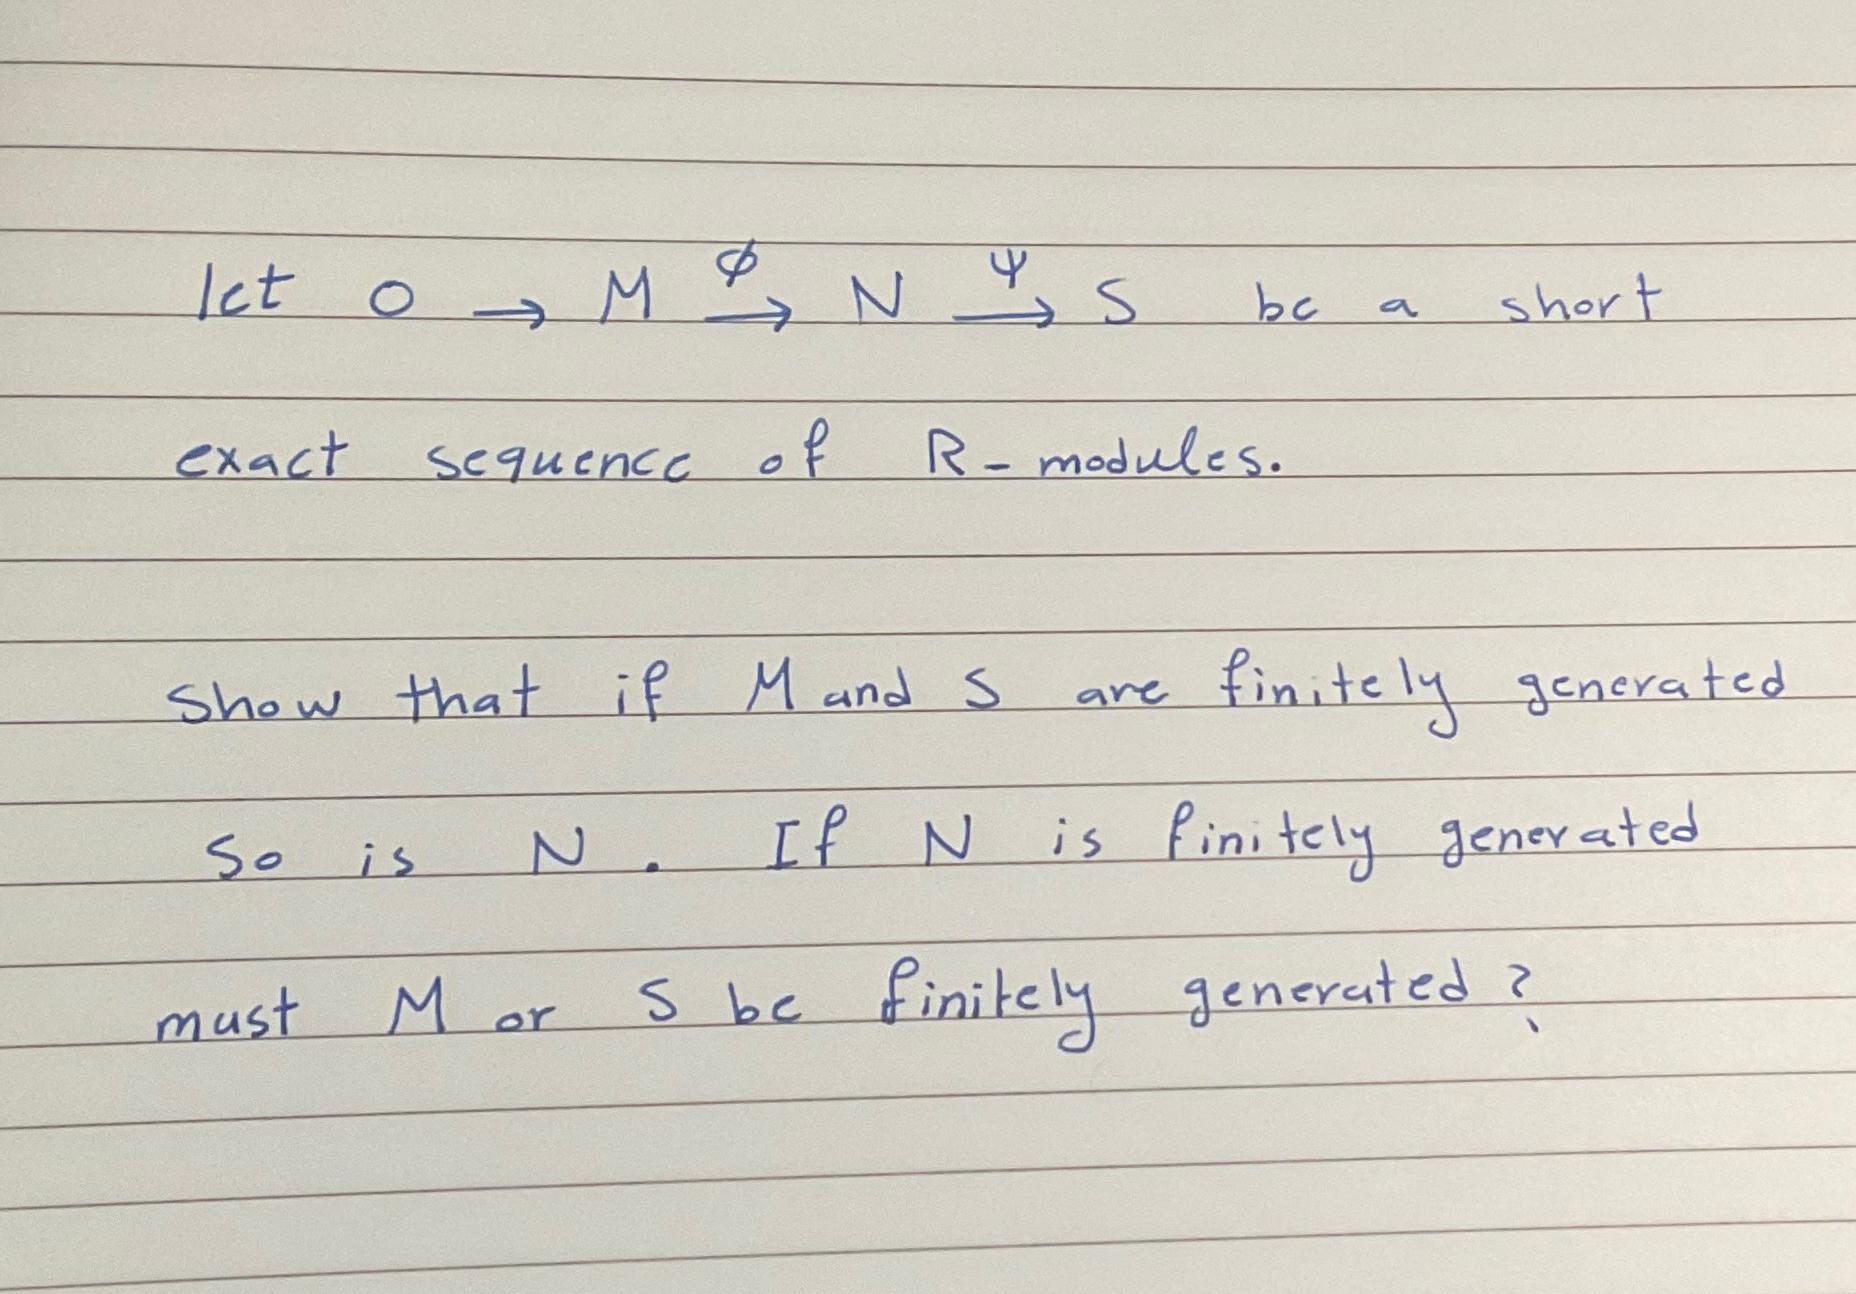 let 0 → M →^ϕ N →^ψ S be a short
exact sequence of R-modules.
Show that if M and S are finitely generated
So is N. If N is finitely generated
must M or S be finitely generated?